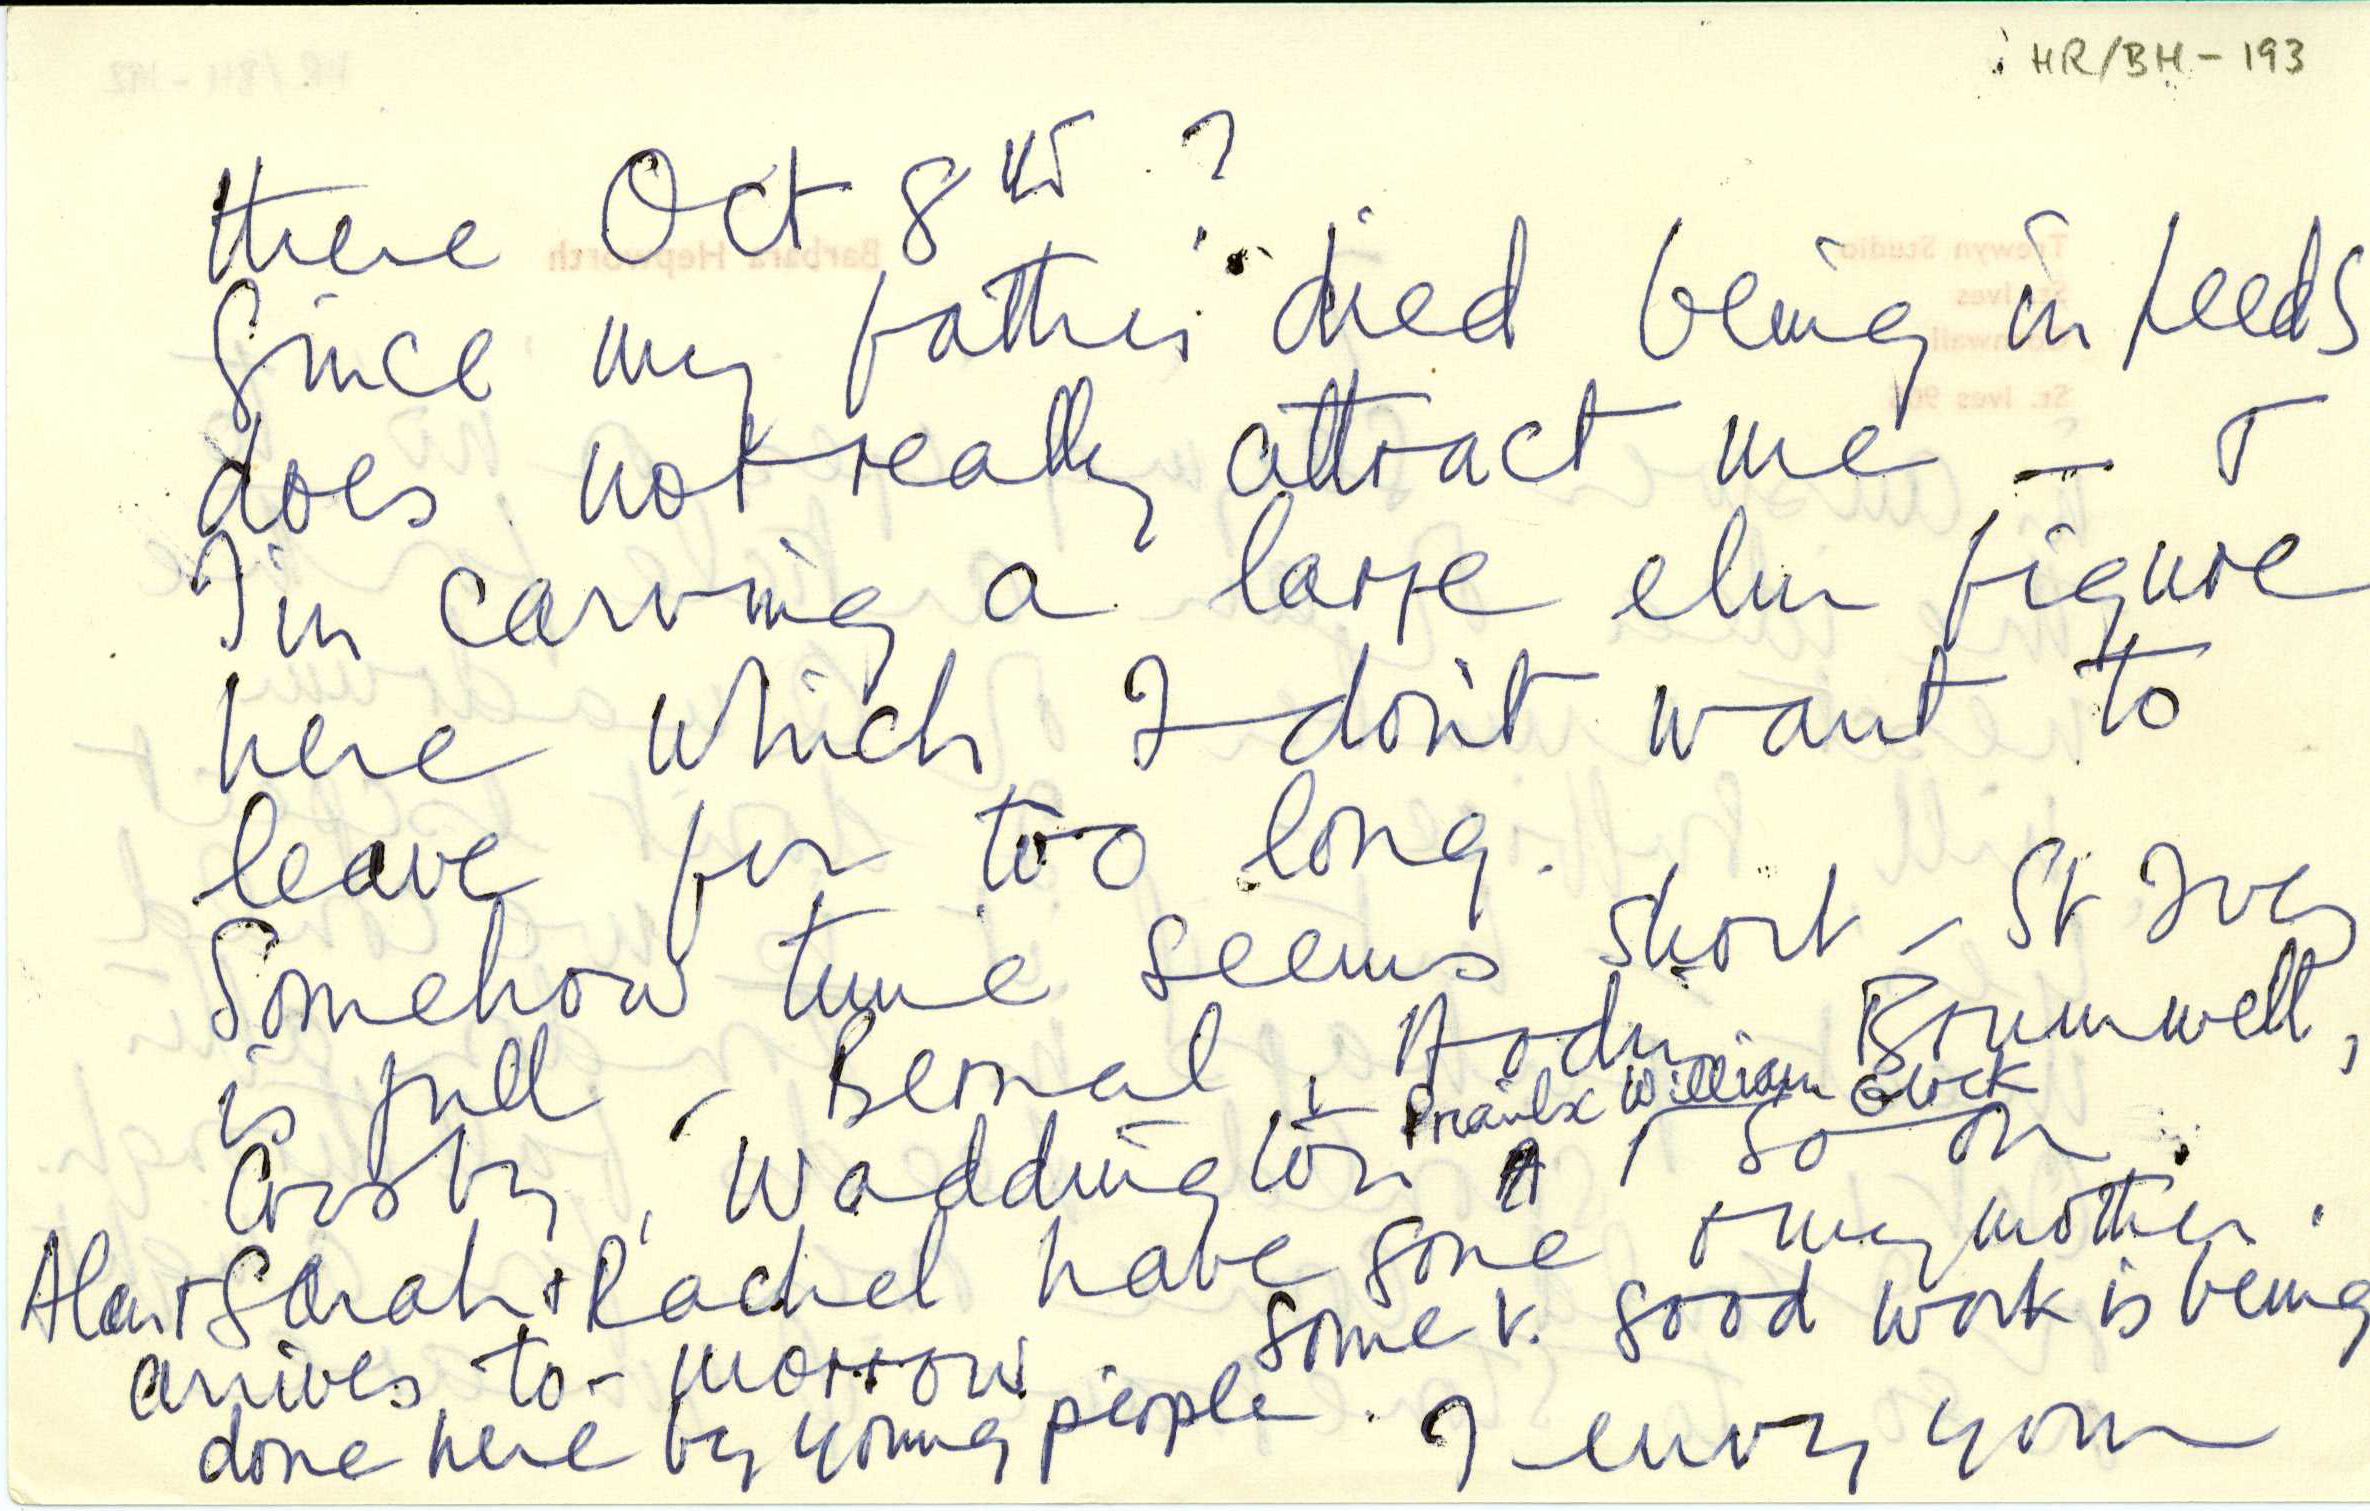 HR/BH - 193
there Oct 8th ?
Since my father died being in Leeds
does not really attract me — &
I'm carving a large elm figure
here which I don't want to
leave for too long.
Somehow time seems short - St Ives
is full - Bernal, Brumwell,
Priaulx William Glock
Crosby, Waddington & so on
Alan & Sarah & Rachel have gone & my mother.
arrives to-morrow Some v. good work is being
done here by young people. I envy your